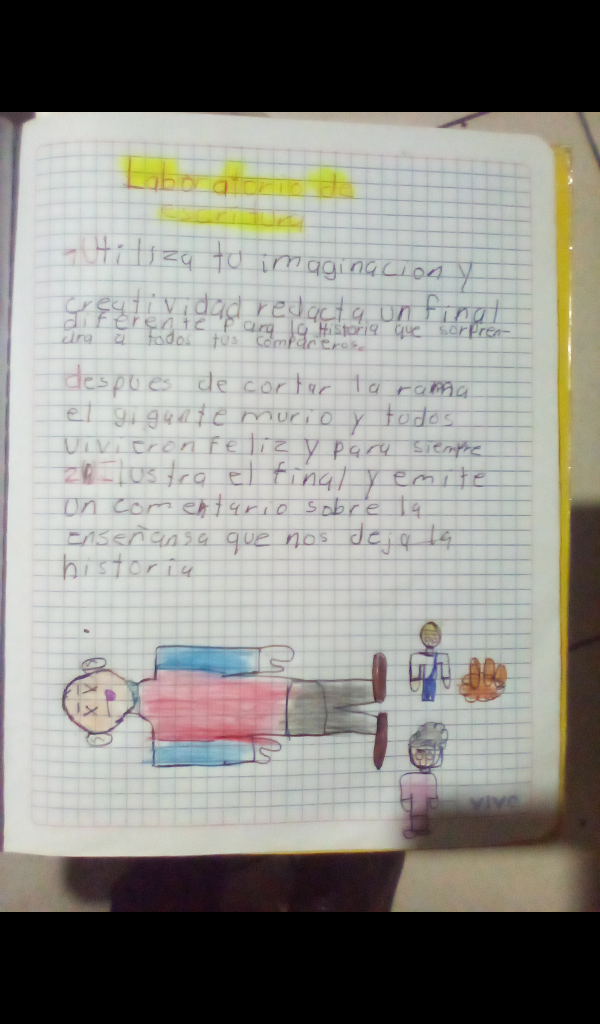 Laboratorio de
escritura
1 Utiliza tu imaginacion y
creatividad redacta un final
diferente para la Historia que sorpren-
dra a todos tus compañeros.
despues de cortar la rama
el gigante murio y todos
vivieron feliz y para siempre
2 Ilustra el final y emite
un comentario sobre la
enseñansa que nos deja la
historia
vivo